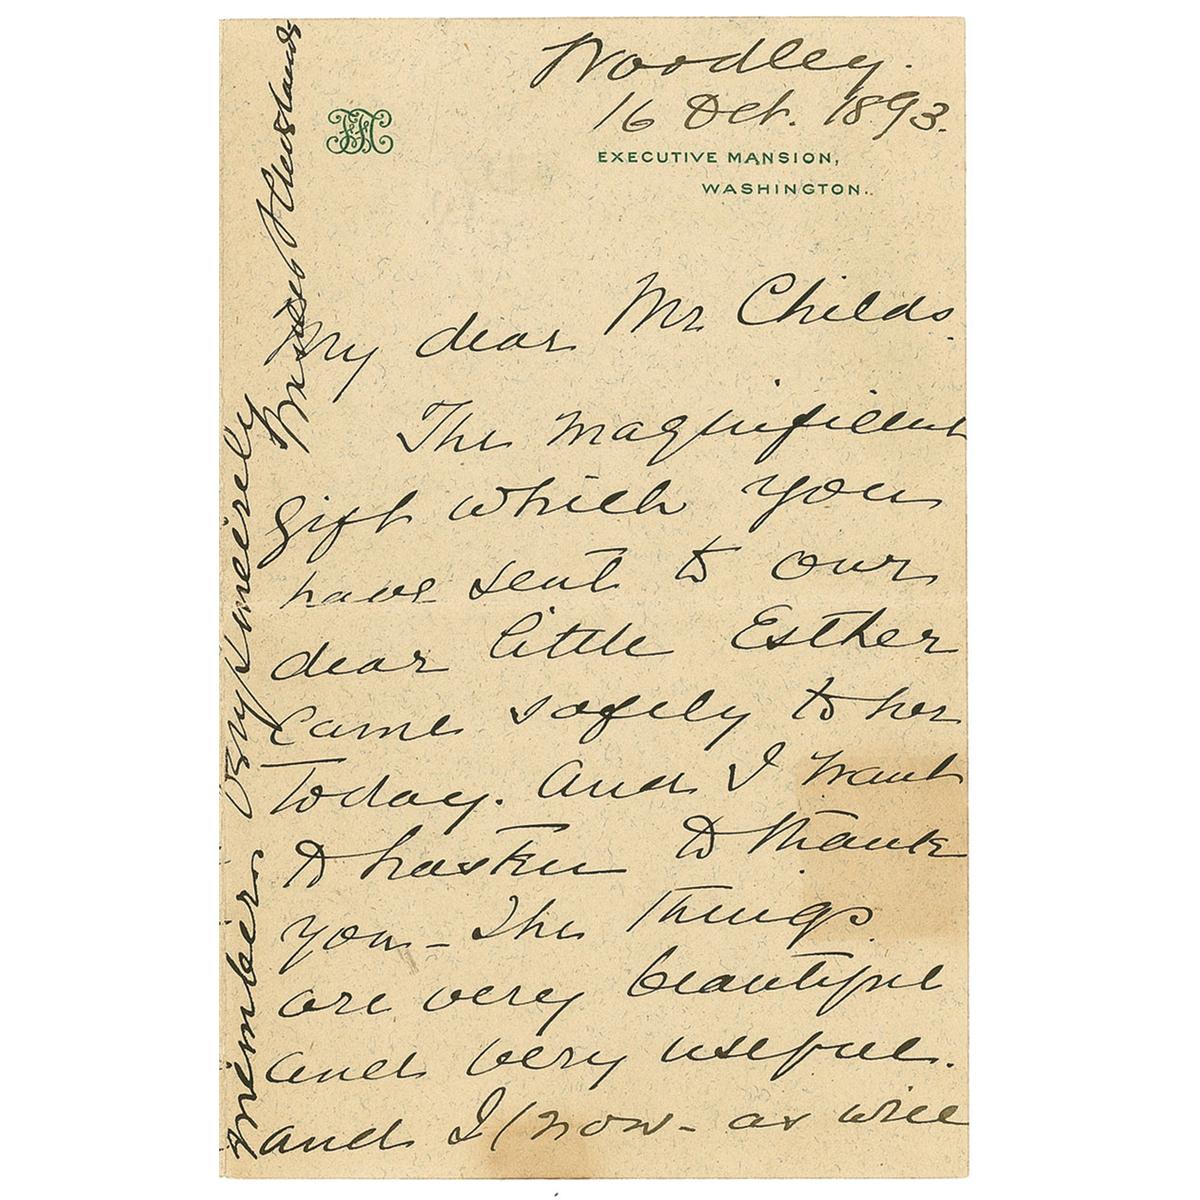 Woodley.
16 Oct. 1893.
EXECUTIVE MANSION,
WASHINGTON.
My dear Mr Childs
The magnificent
gift which you
have sent to our
dear little Esther
came safely to her
Today. And I want
to hasten to thank
you – The things
are very beautiful
and very useful.
and I (now – as will
member.
Very sincerely
Cleveland